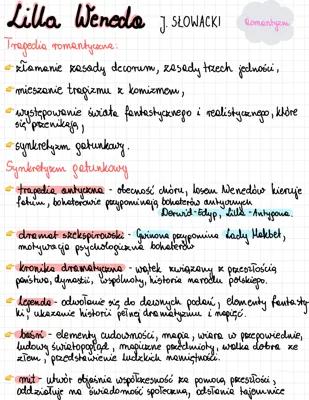 Lilla Weneda J. SŁOWACKI Romantyzm
Tragedia romantyczna:
złamanie zasady decorum, zasady trzech jedności,
mieszanie tragizmu z komizmem,
występowanie świata fantastycznego i realistycznego, które
się przenikają,
synkretyzm gatunkowy.
Synkretyzm gatunkowy
tragedia antyczna - obecność chóru, losem Wenedów kieruje
fatum, bohaterowie przypominają bohaterów antycznych
Derwid-Edyp, Lilla-Antygona.
dramat szekspirowski - Gwinona przypomina Lady Makbet,
motywacja psychologiczna bohaterów
kronika dramatyczna - wątek związany z przeszłością
państwa, dynastii, wspólnoty, historia narodu polskiego.
legenda - odwołanie się do dawnych podań, elementy fantasty-
ki, ukazanie historii pełnej dramatyzmu i napięć.
baśń - elementy cudowności, magia, wiara w przepowiednie,
ludowy światopogląd, magiczne przedmioty, walka dobra ze
złem, przedstawienie ludzkich namiętności.
mit - utwór objaśnia współczesność za pomocą przeszłości,
oddziałuje na świadomość społeczną, odsłania tajemnice